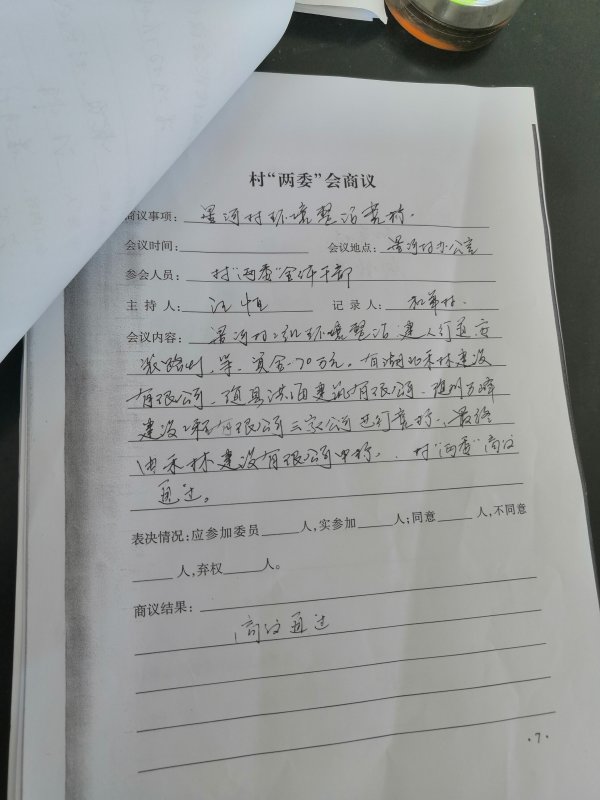 村“两委”会商议
商议事项: 景河村环境整治竞标.
会议时间: 会议地点: 景河村办公室
参会人员: 村“两委”全体干部
主 持 人: 汪恒 记 录 人:
会议内容: 景河村 环境整治建人行道安
装路灯,等,资金70万元。有湖北禾林建设
有限公司、随县 建筑有限公司、随州万峰
建设工程有限公司三家公司进行竞标、最终
由禾林建设有限公司中标。、村“两委”商议
通过。
表决情况:应参加委员 人,实参加 人;同意 人,不同意
人,弃权 人。
商议结果:
商议通过
·7·